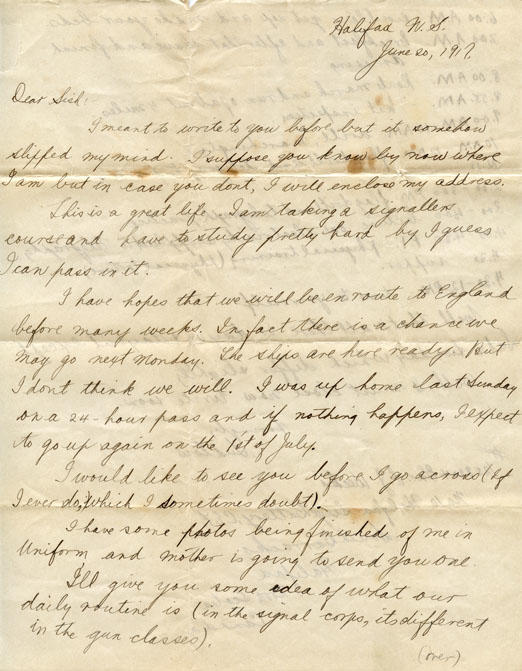 Halifax N. S.
June 20, 1917.
Dear Sish:
I meant to write to you before but it somehow
slipped my mind. I suppose you know by now where
I am but in case you dont, I will enclose my address.
This is a great life. I am taking a signallers
course and have to study pretty hard by I guess
I can pass in it.
I have hopes that we will be en route to England
before many weeks. In fact there is a chance we
may go next Monday. The ships are here ready. But
I dont think we will. I was up home last Sunday
on a 24-hour pass and if nothing happens, I expect
to go up again on the 1st of July.
I would like to see you before I go across (if
I ever do, which I sometimes doubt).
I have some photos being finished of me in
Uniform and mother is going to send you one.
I'll give you some idea of what our
daily routine is (in the signal corps, its different
in the gun classes).
(over)